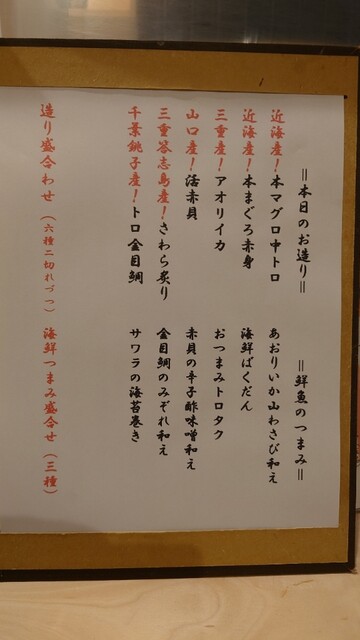 ＝本日のお造り＝
近海産！本マグロ中トロ
近海産！本まぐろ赤身
三重産！アオリイカ
山口産！活赤貝
三重答志島産！さわら炙り
千葉銚子産！トロ金目鯛
＝鮮魚のつまみ＝
あおりいか山わさび和え
海鮮ばくだん
おつまみトロタク
赤貝の辛子酢味噌和え
金目鯛のみぞれ和え
サワラの海苔巻き
造り盛合わせ（六種二切れづつ）
海鮮つまみ盛合せ（三種）